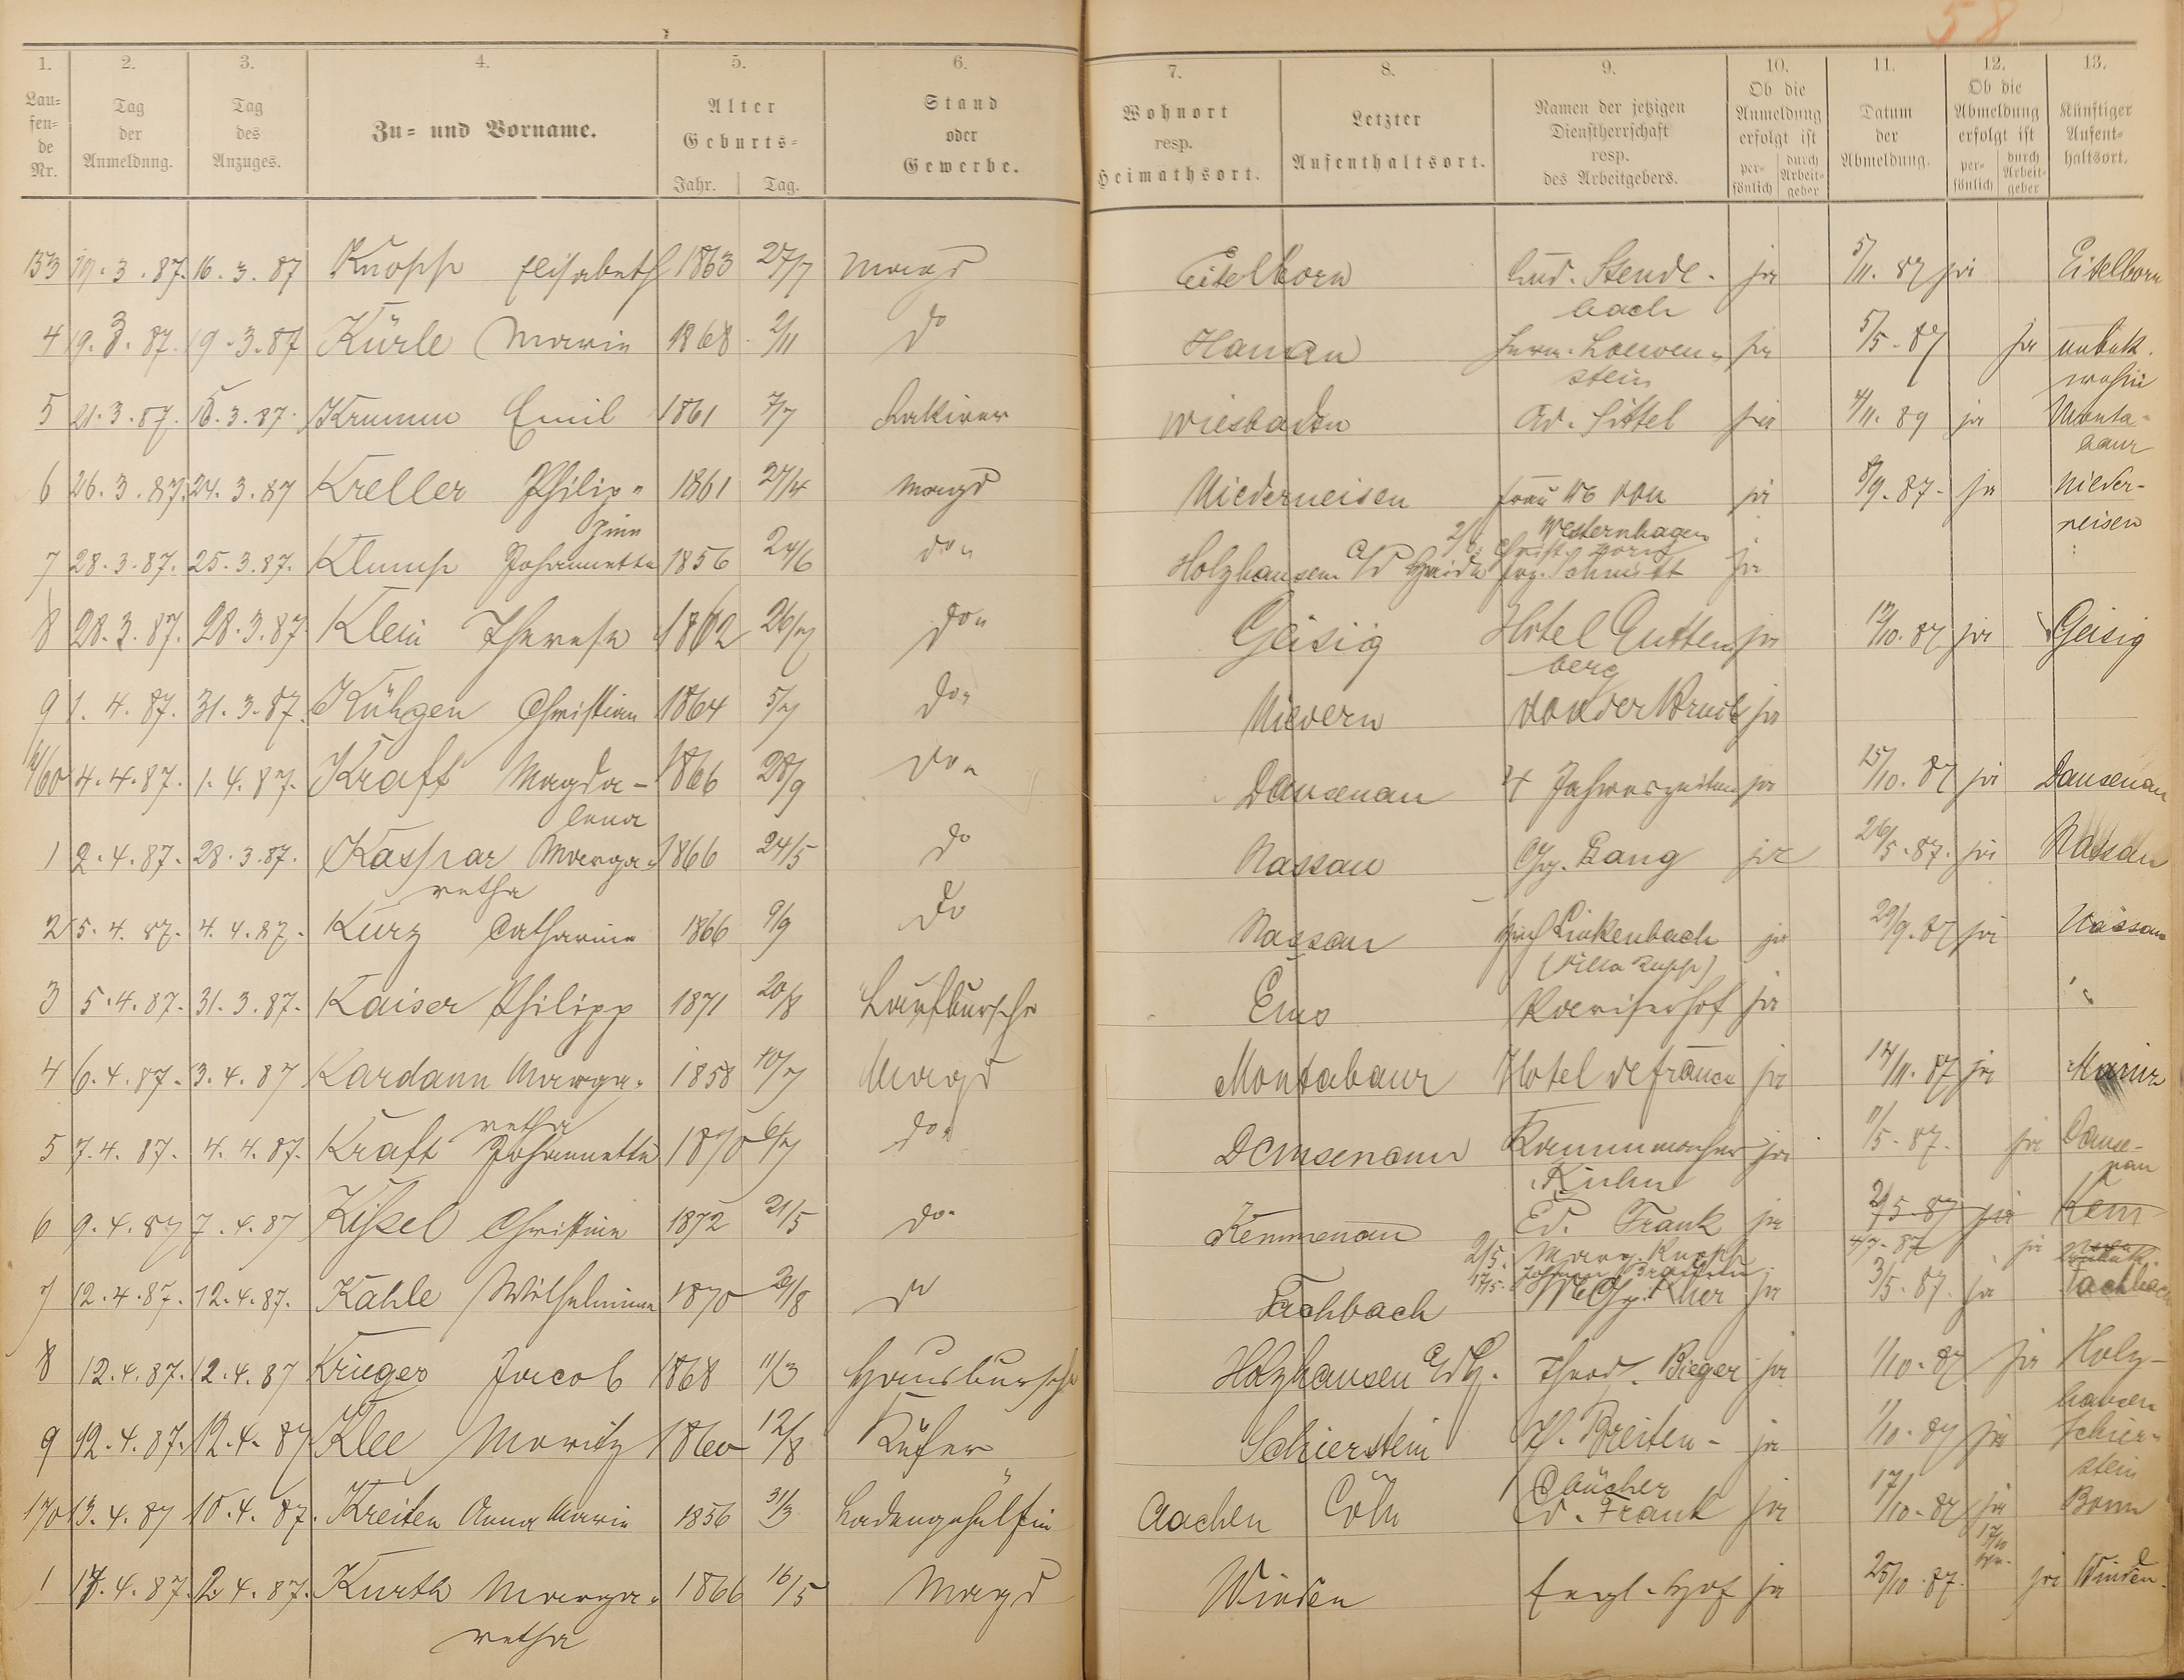 58
1. 2. 3. 4. 5. 6. 7. 8. 9. 10. 11. 12. 13.
Laufende Nr.
Tag der Anmeldung.
Tag des Anzuges.
Zu- und Vorname.
Alter
Geburts-
Jahr. Tag.
Stand oder Gewerbe.
Wohnort resp. Heimathsort.
Letzter Aufenthaltsort.
Namen der jetzigen Dienstherrschaft resp. des Arbeitgebers.
Ob die Anmeldung erfolgt ist
persönlich durch Arbeitgeber
Datum der Abmeldung.
Ob die Abmeldung erfolgt ist
persönlich durch Arbeitgeber
Künftiger Aufenthaltsort.
153 19.3.87. 16.3.87 Knopp Elisabeth 1863 27/7 Magd Eitelborn Lud. Stendebach ja 5/11.87 ja Eitelborn
4 19.3.87. 19.3.87 Kürle Marie 1868 2/11 do Hanau Herm. Loewenstein ja 5/5.87 ja unbek. wohin
5 21.3.87. 16.3.87. Krumm Emil 1861 7/7 Wiesbaden Ad. Sittel ja 4/11.89 ja Montabaur
6 26.3.87. 24.3.87 Kreller Philippine 1861 27/4 Magd Niederneisen Frau We von Westernhagen ja 8/9.87. ja Niederneisen
7 28.3.87. 25.3.87. Klump Johannette 1856 24/6 do" Holzhausen a/d Haide Frz. Schmidt ja
8 28.3.87. 28.3.87. Klein Therese 1862 26/7 do" Geisig Hotel Guttenberg ja 12/10.87 ja Geisig
9 1.4.87. 31.3.87. Kühgen Christian 1864 5/7 do" Nievern von der ja
160 4.4.87. 1.4.87. Kraft Magdalena 1866 28/9 do" Dausenau 4 Jahreszeiten ja 15/10.87 ja Dausenau
1 2.4.87. 28.3.87. Kaspar Margaretha 1866 24/5 do Nassau Gg. Bang ja 26/5.87. ja Nassau
2 5.4.87. 4.4.87. Kurz Catharine 1866 9/9 do Nassau Linkenbach (Villa Rupp) ja 29/9.87 ja Nassau
3 5.4.87. 31.3.87. Kaiser Philipp 1871 20/8 Laufbursche Ems ja "
4 6.4.87. 3.4.87 Kardann Margaretha 1858 10/7 Magd Montabaur Hotel de france ja 14/11.87 ja
5 7.4.87. 4.4.87. Kraft Johannette 1870 6/7 do" Dausenau Kammmacher Kuhn ja 11/5.87. ja Dausenau
6 9.4.87 7.4.87 Kissel Christine 1872 21/5 do" Kemmenau Ed. Frank ja 2/5.87 ja Kem
2/5. Marg. Knopp 4/7.87 ja
7 12.4.87. 12.4.87. Kahle Wilhelmine 1870 20/8 do Fachbach ja 3/5.87. ja Fachbach
8 12.4.87. 12.4.87 Krieger Jacob 1868 11/3 Hausbursche Holzhausen Theod. Bieger ja 1/10.87 ja Holzhausen
9 12.4.87. 12.4.87 Klee Moritz 1860 12/8 Küfer Schierstein Breitenbücher ja 1/10.87 ja Schierstein
170 13.4.87 10.4.87. Kreiten Anna Marie 1856 31/3 Ladengehülfin Aachen Cöln Ed. Frank ja 17/10.87 ja Bonn
1 17.4.87. 12.4.87. Kurth Margaretha 1866 16/5 Magd Winden Engl. Hof ja 25/10.87. ja Winden.